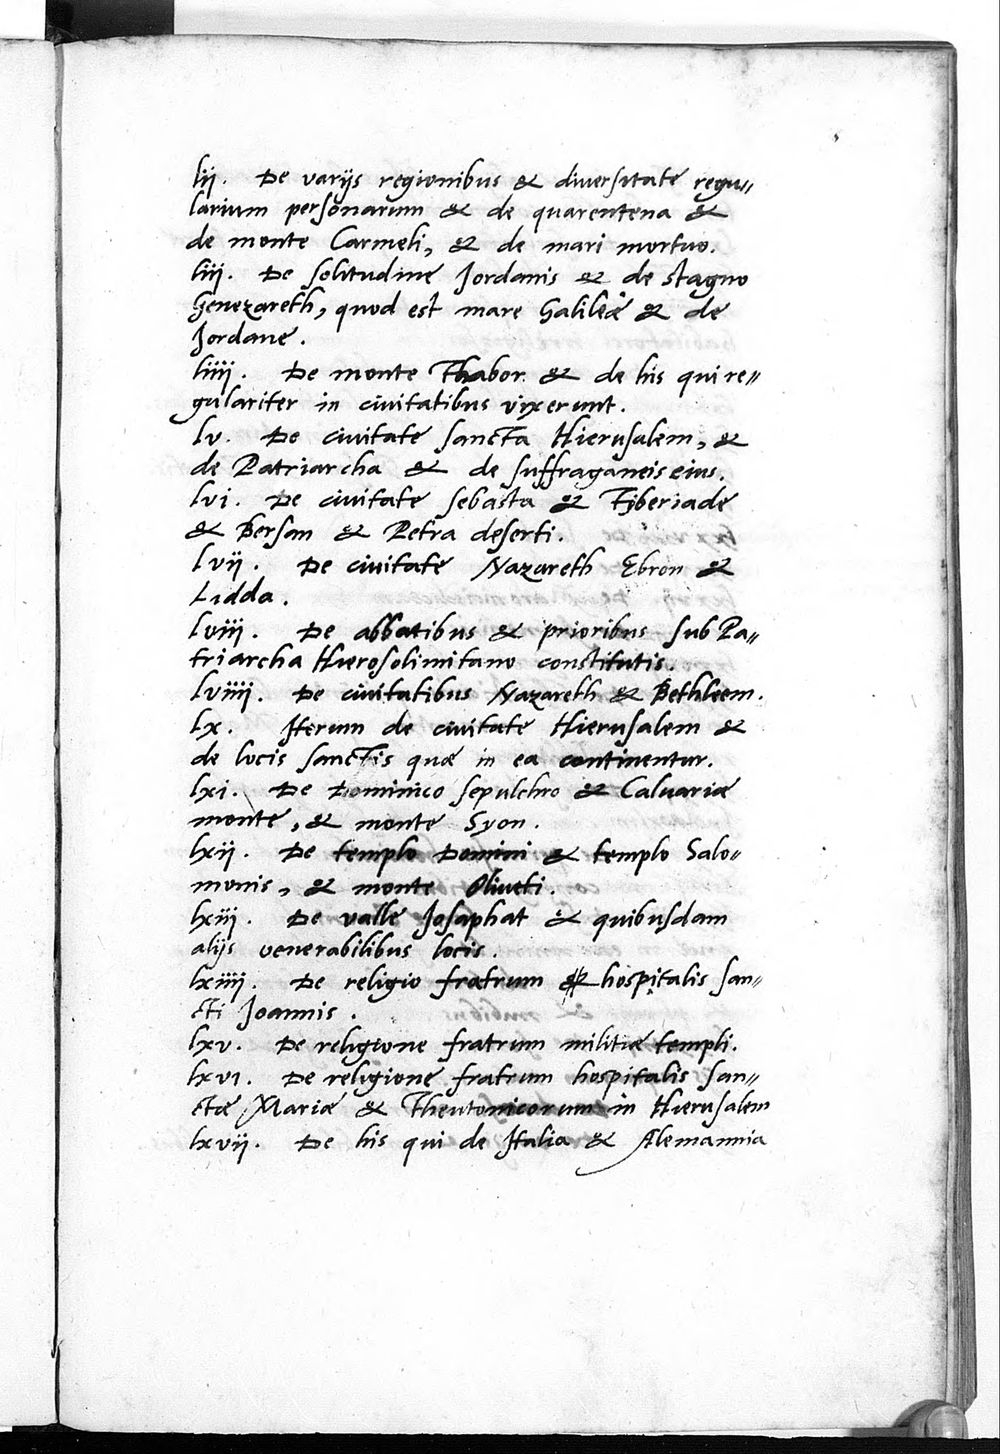 lij. De varijs regionibus & diuersitate regu〃
larium personarum & de quarentena &
de monte Carmeli, & de mari mortuo.
liij. De solitudine Jordanis & de stagno
Genezareth, quod est mare Galileæ & de
Jordane.
liiij. De monte Thabor & de his qui re〃
gulariter in ciuitatibus vixerunt.
lv. De ciuitate sancta Hierusalem, &
de Patriarcha & de suffraganeis eius.
lvi. De ciuitate sebasta & Tyberiade
& Bersan & Petra deserti.
lvij. De ciuitate Nazareth Ebron &
Lidda.
lviij. De abbatibus & prioribus sub Pa〃
triarcha Hierosolimitano constitutis.
lviiij. De ciuitatibus Nazareth & Bethleem.
lx. Iterum de ciuitate Hierusalem &
de locis sanctis quæ in ea continentur.
lxi. De Dominico sepulchro & Caluariæ
monte, & monte Syon.
lxij. De templo Domini & templo Salo〃
monis, & monte Oliueti.
lxiij. De valle Josaphat & quibusdam
alijs venerabilibus locis.
lxiiij. De religio fratrum & hospitalis san〃
cti Joannis.
lxv. De religione fratrum militiæ templi.
lxvi. De religione fratrum hospitalis san〃
ctæ Mariæ & Theutonicorum in Hierusalem
lxvij. De his qui de Italia & Alemannia